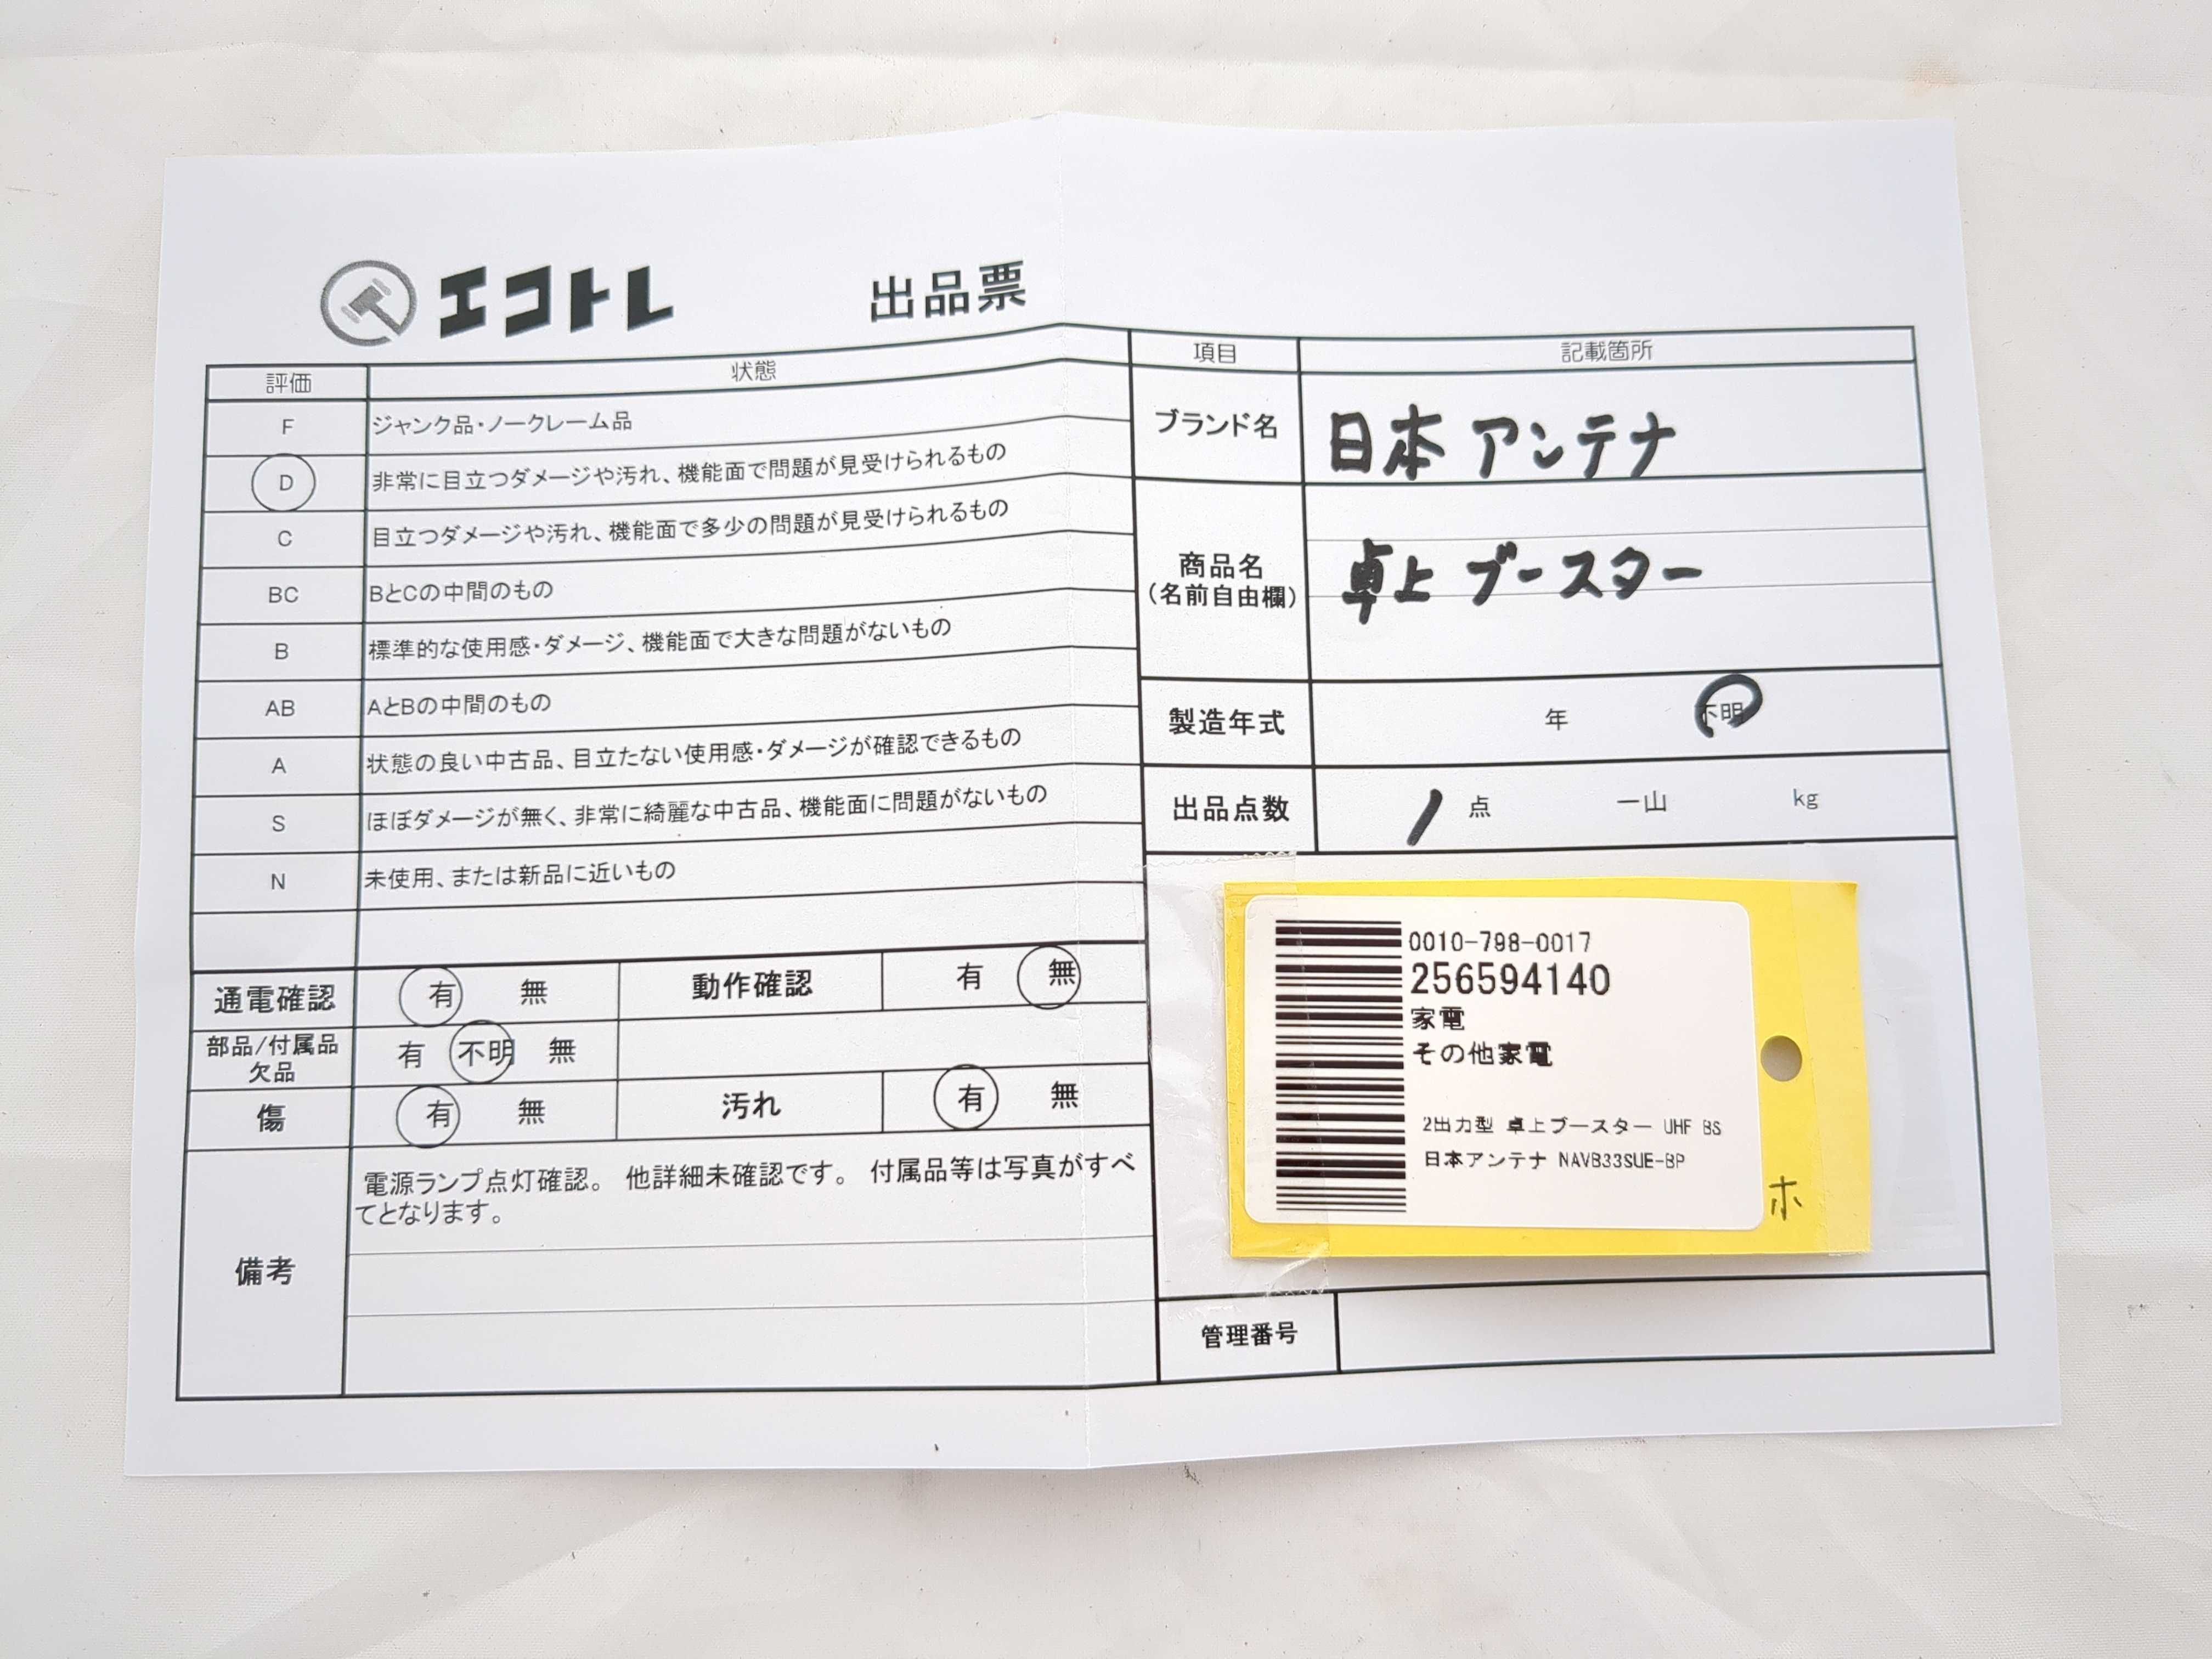 エコトレ
出品票
評価 状態
F ジャンク品・ノークレーム品
D 非常に目立つダメージや汚れ、機能面で問題が見受けられるもの
C 目立つダメージや汚れ、機能面で多少の問題が見受けられるもの
BC BとCの中間のもの
B 標準的な使用感・ダメージ、機能面で大きな問題がないもの
AB AとBの中間のもの
A 状態の良い中古品、目立たない使用感・ダメージが確認できるもの
S ほぼダメージが無く、非常に綺麗な中古品、機能面に問題がないもの
N 未使用、または新品に近いもの
通電確認 有 無 動作確認 有 無
部品/付属品
欠品 有 不明 無
傷 有 無 汚れ 有 無
備考
電源ランプ点灯確認。 他詳細未確認です。 付属品等は写真がすべ
てとなります。
項目 記載箇所
ブランド名 日本アンテナ
商品名
(名前自由欄)
卓上 ブースター
製造年式 年 不明
出品点数 1 点 一山 kg
0010-798-0017
256594140
家電
その他家電
2出力型 卓上ブースター UHF BS
日本アンテナ NAVB33SUE-BP
ホ
管理番号